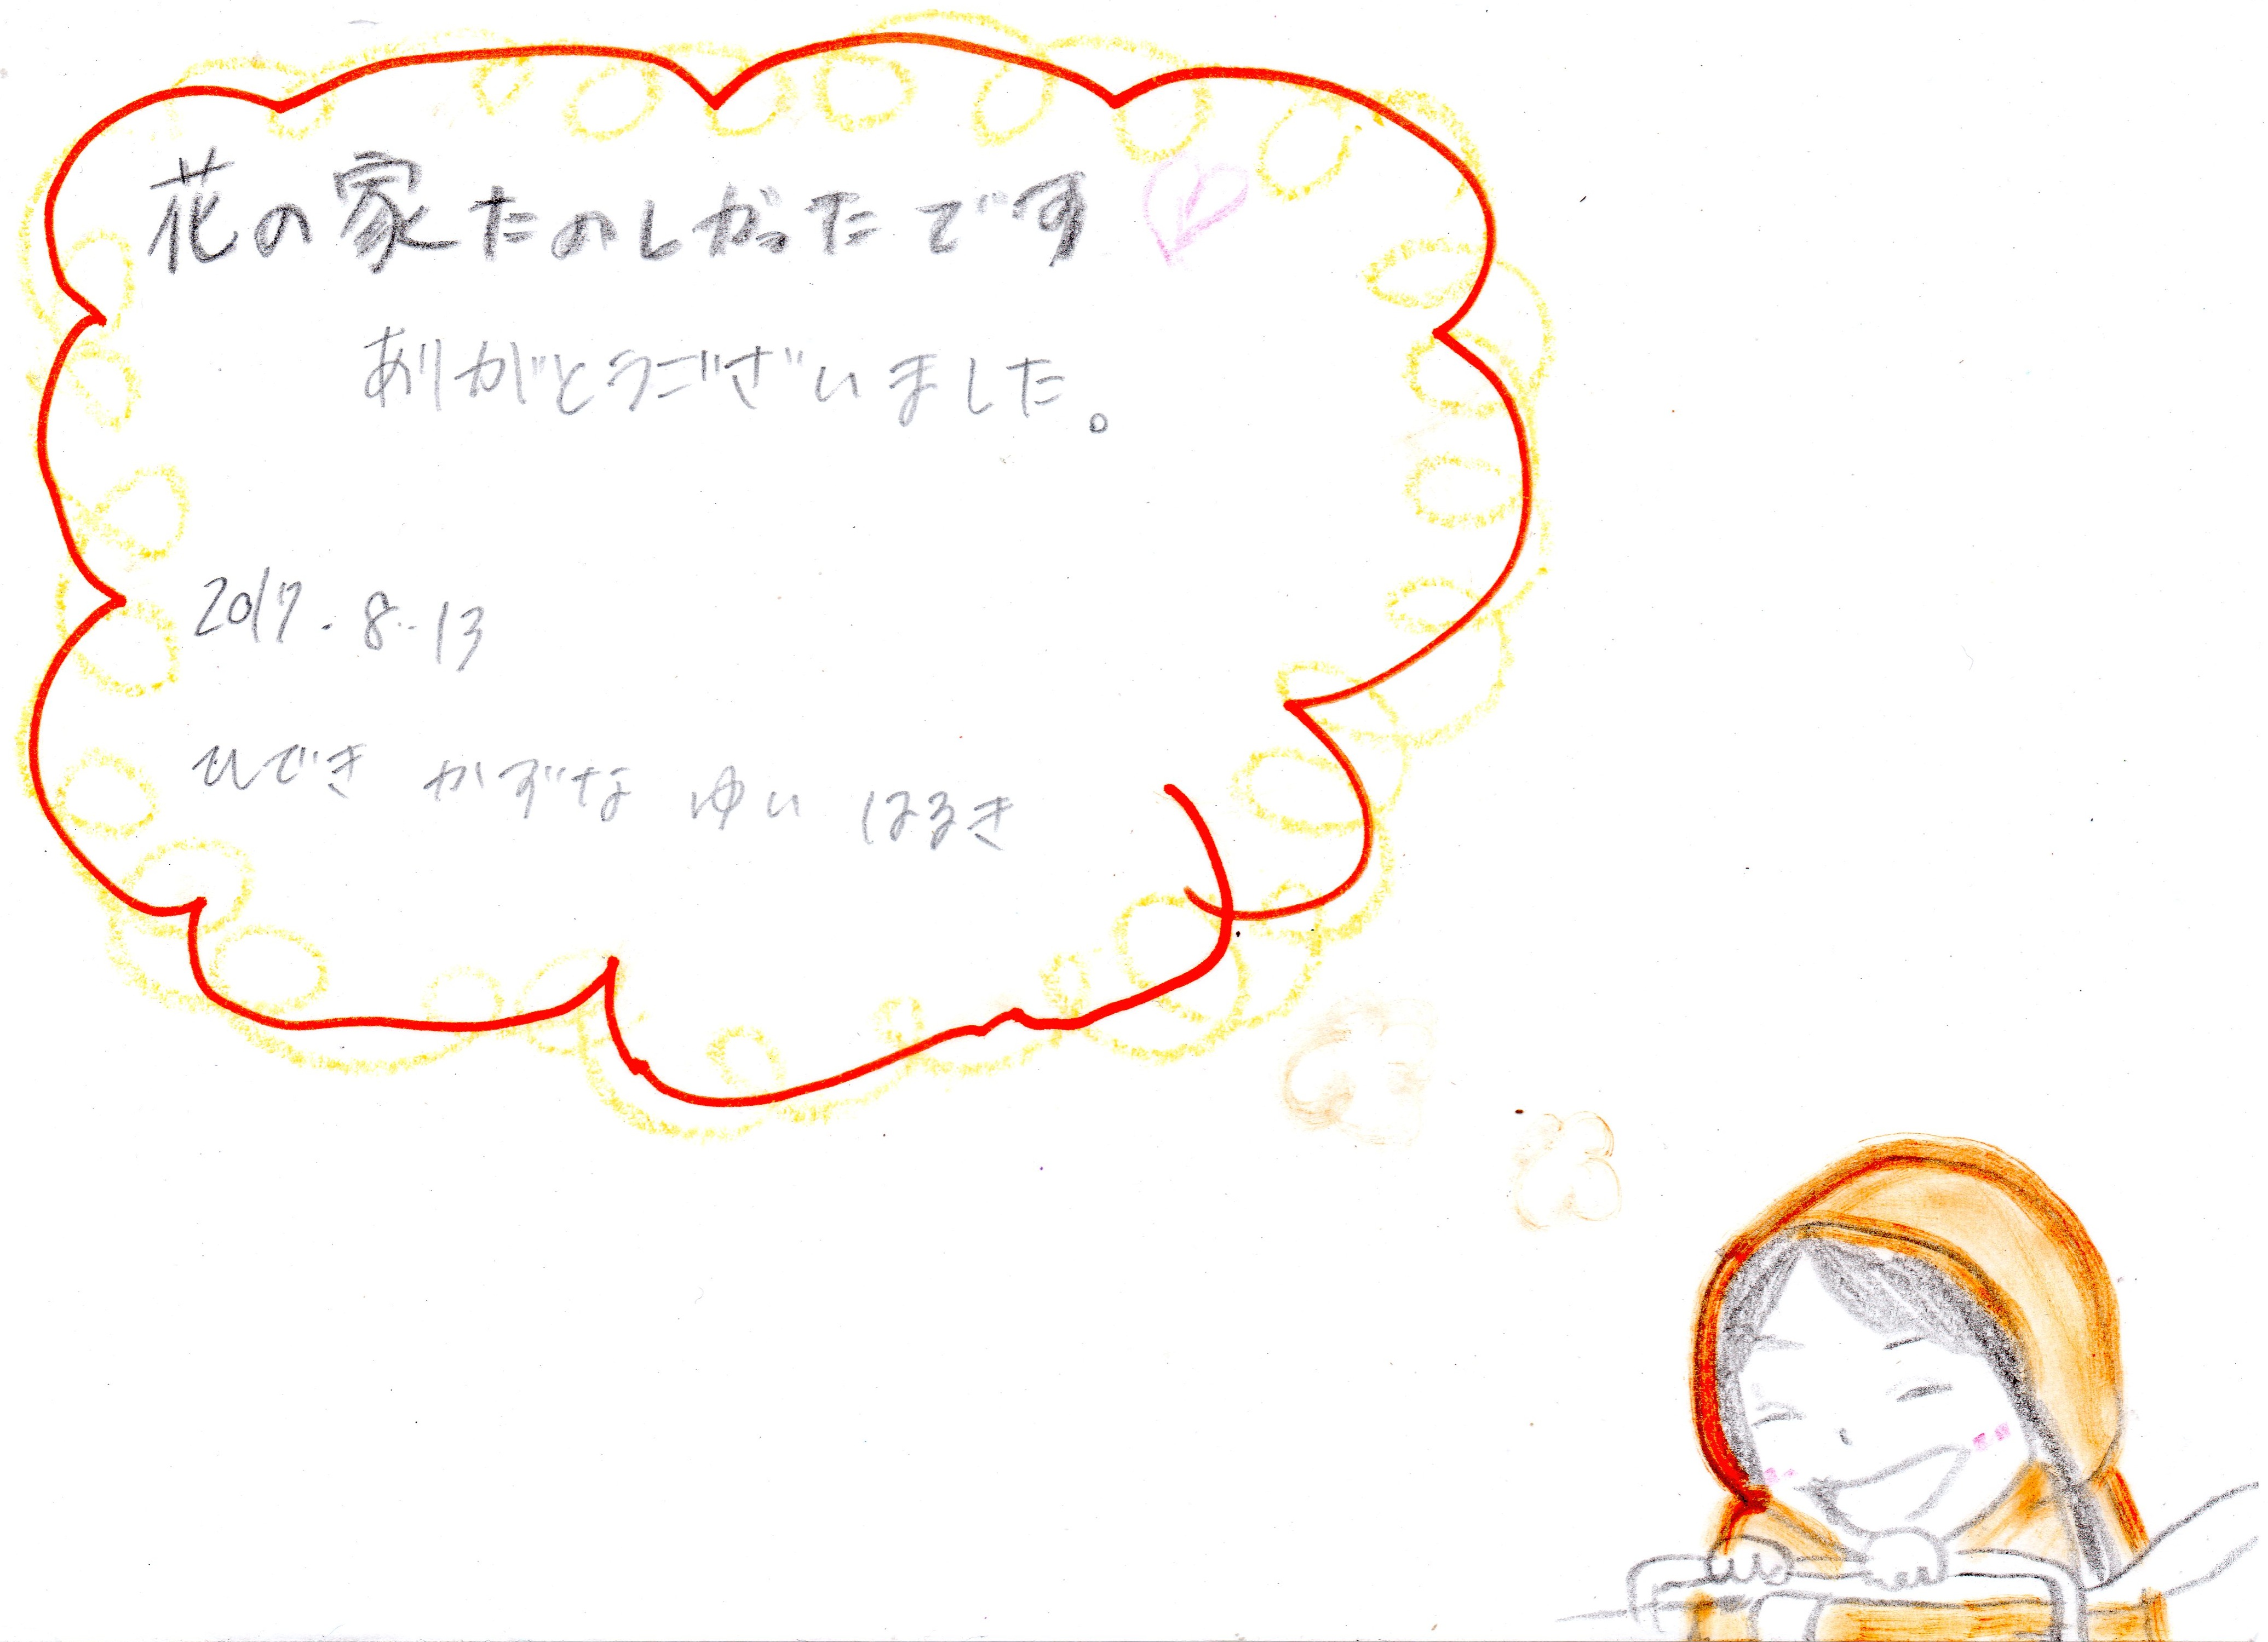 花の家たのしかったです
ありがとうございました。
2017.8.13
ひでき かずな ゆい はるき